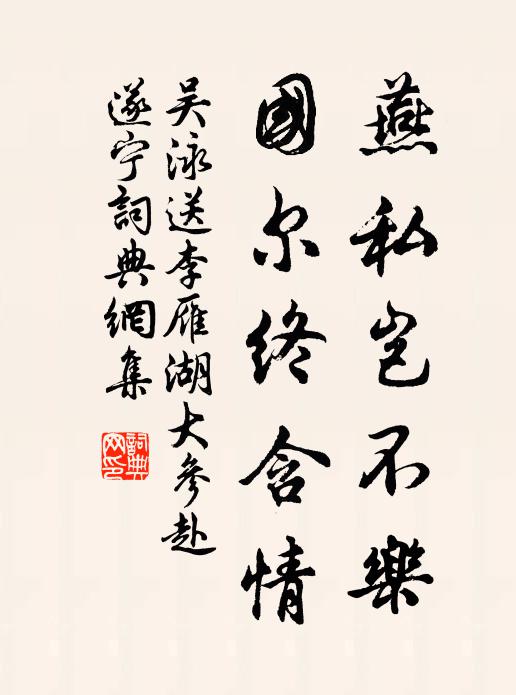 燕私岂不樂
國尔终含情
吴泳送李雁湖大参赴
遂宁詞典網集
詞典网印